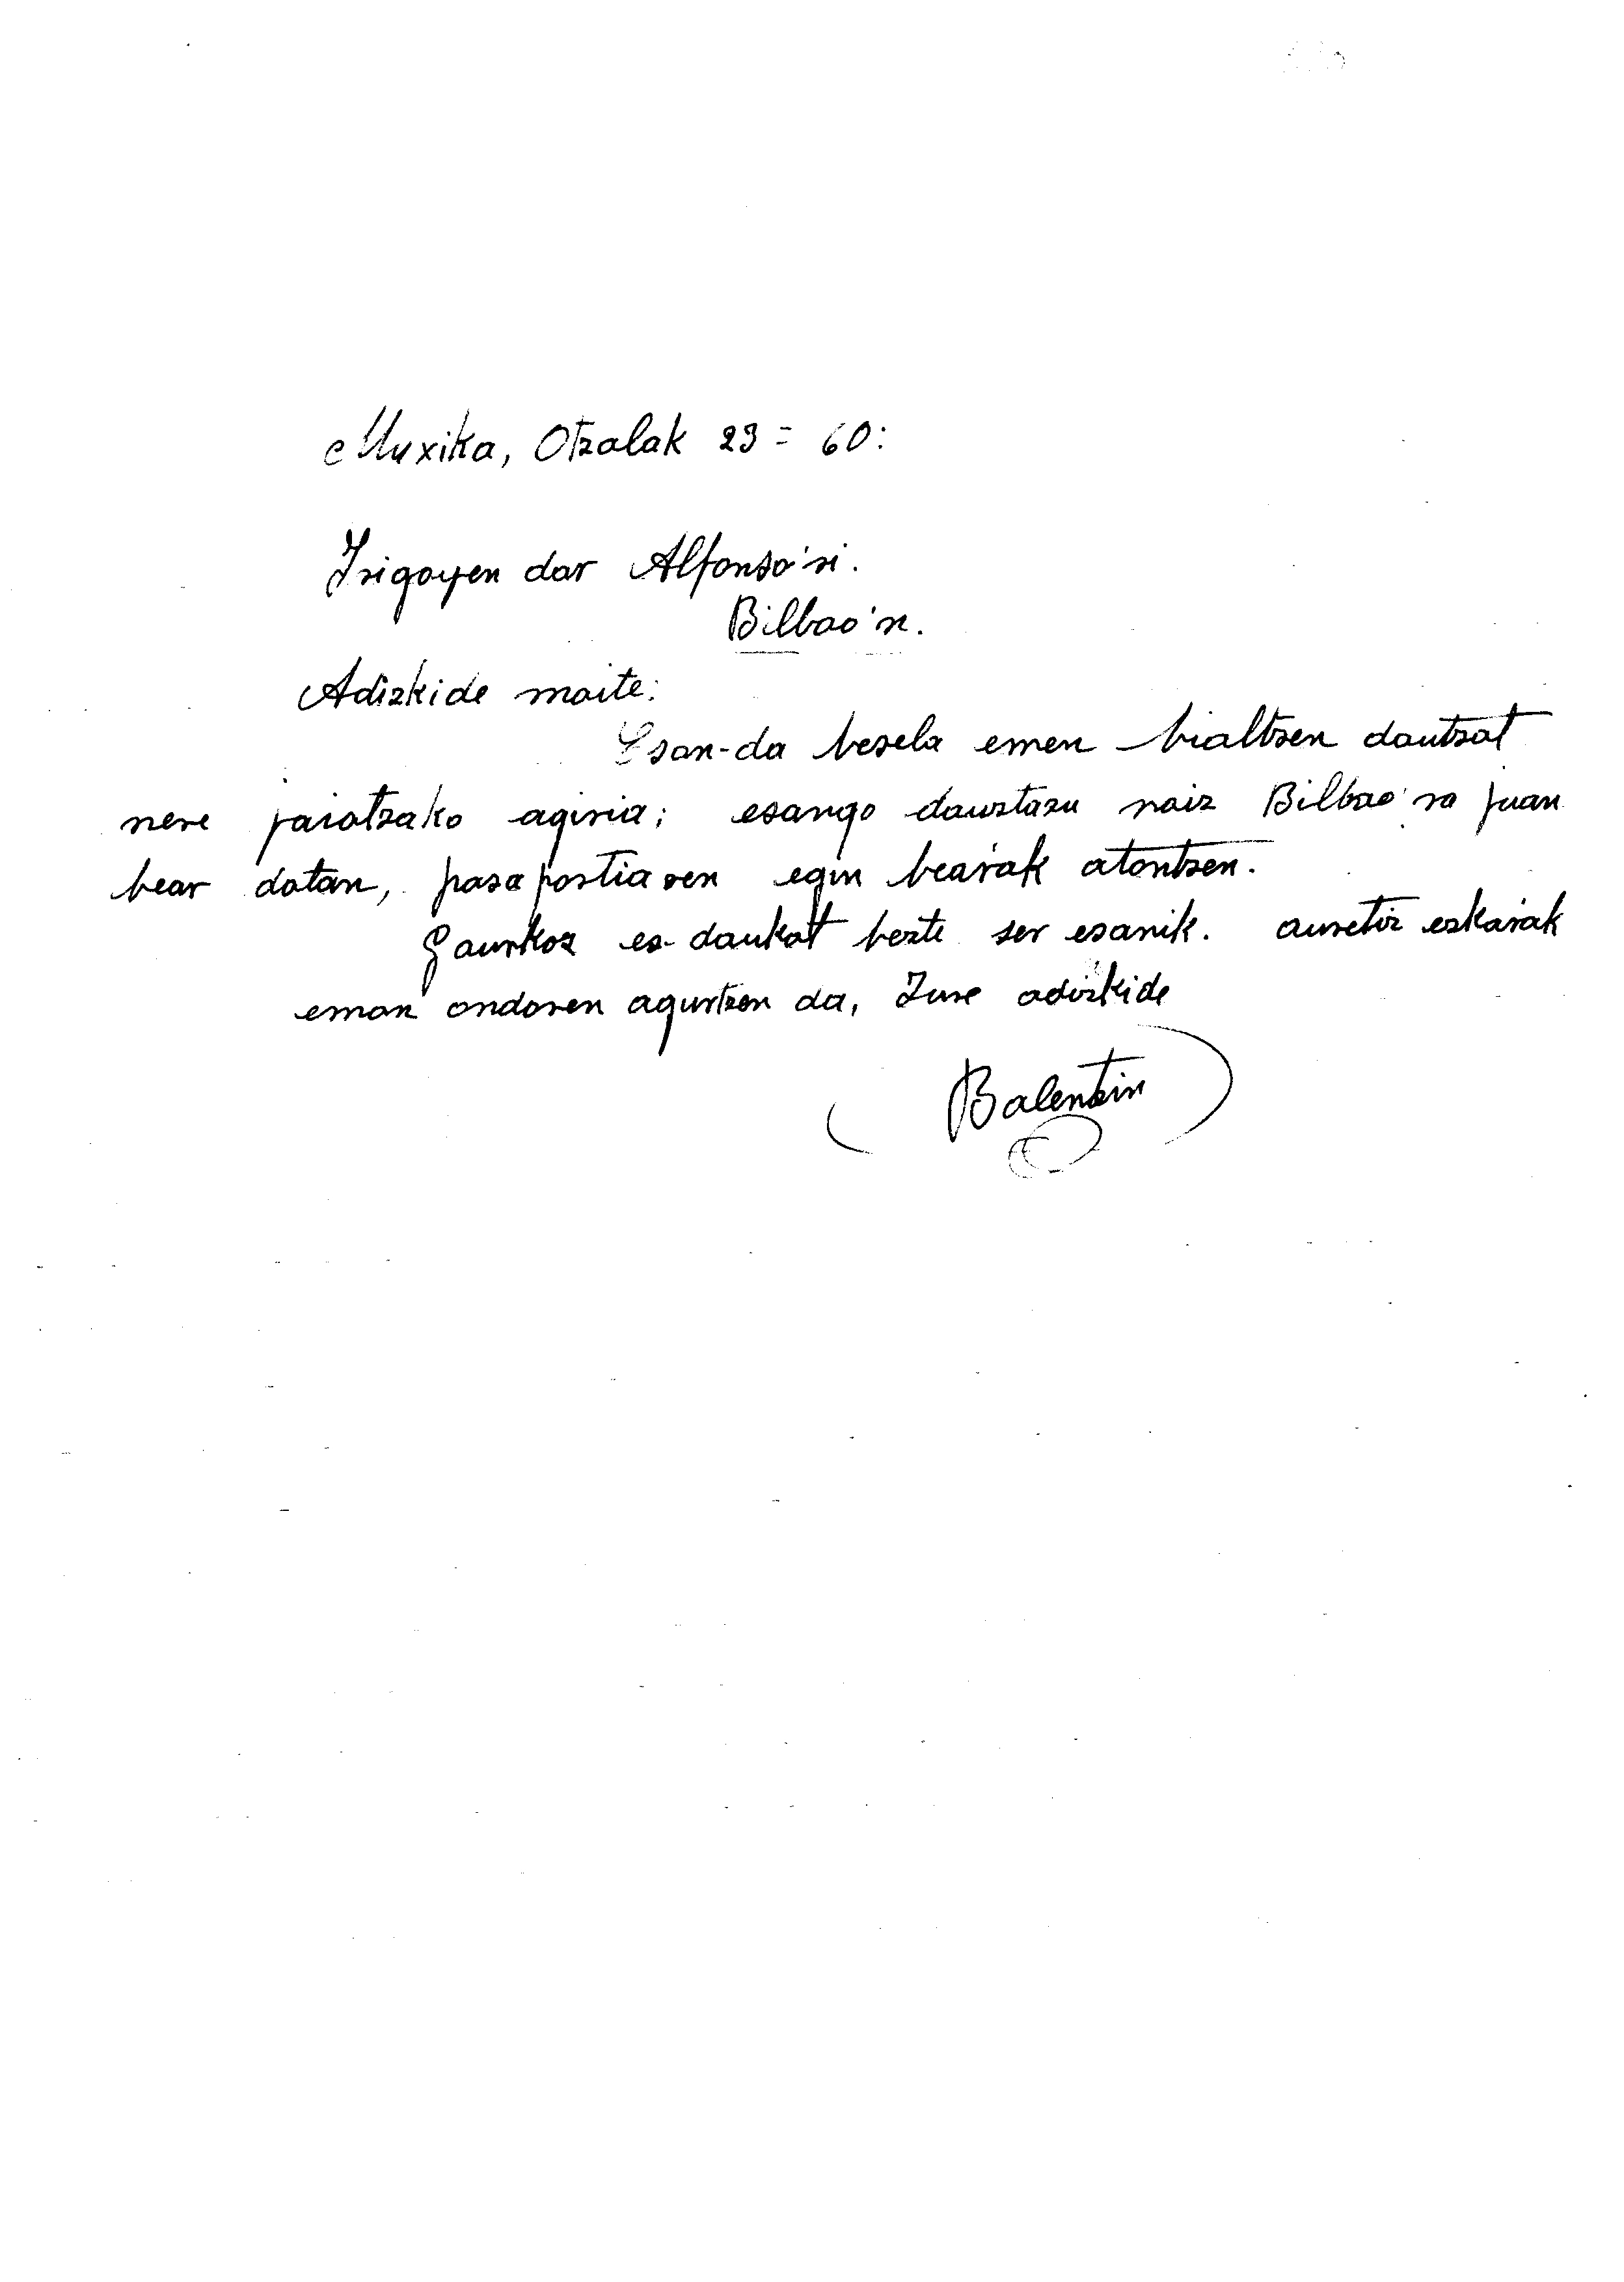 Muxika, Otzalak 23 = 60:
Irigoyen dar Alfonso'ri.
Bilbao'n.
Adizkide maite:
Esan-da bezela emen bialtzen dautzat
nere jaiotzako agiria; esango daustazu noiz Bilbao'ra juan
bear dotan, pasaportiaren egin beaŕak atontzen.
Gaurkoz ez-daukat bezte zer esanik. auretiz ezkaŕak
eman ondoren agurtzen da, Zure adizkide
Balentin